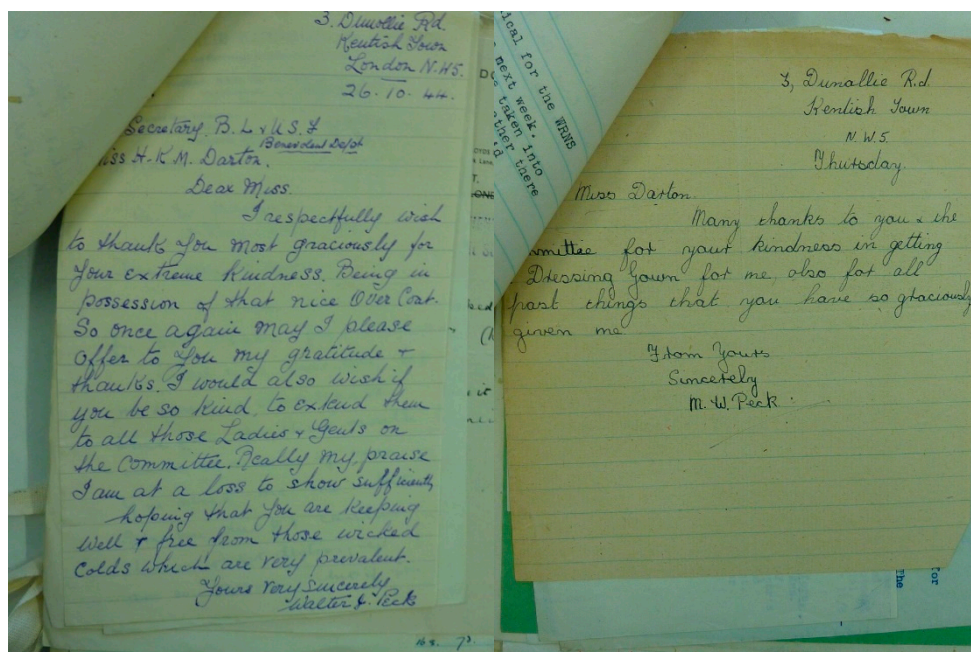 3. Dunollie Rd.
Kentish Town
London N.W5.
26.10.44.
Secretary. B. L & U S. F
Benevolent Dept
iss H. K. M. Darton.
Dear Miss.
I respectfully wish
to thank you most graciously for
your extreme kindness. Being in
possession of that nice Over Coat.
So once again may I please
offer to you my gratitude +
thanks. I would also wish if
you be so kind, to extend them
to all those Ladies + Gents on
the committee. Really my praise
I am at a loss to show sufficiently
hoping that you are keeping
well + free from those wicked
colds which are very prevalent.
Yours very sincerely
Walter J. Peck
ical for the WRNS
next week.
taken into
ather there
3, Dunallie R.d.
Kentish Town
N.W.5.
Thursday.
Miss Darton.
Many thanks to you & the
mmittee for your kindness in getting
Dressing Gown for me, also for all
past things that you have so graciously
given me
From Yours
Sincerely
M. W. Peck.
for
The